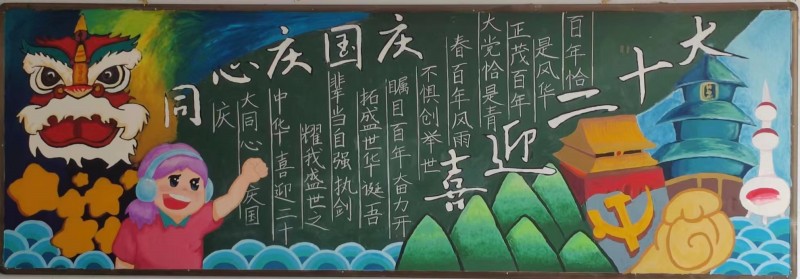 同心庆国庆
喜迎二十大
百年恰
是风华
正茂百年
大党恰是青
春百年风雨
不惧创举世
瞩目百年 奋力开
拓盛世华诞吾
辈当自强执剑
耀我盛世之
中华 喜迎二十
大同心 庆国
庆